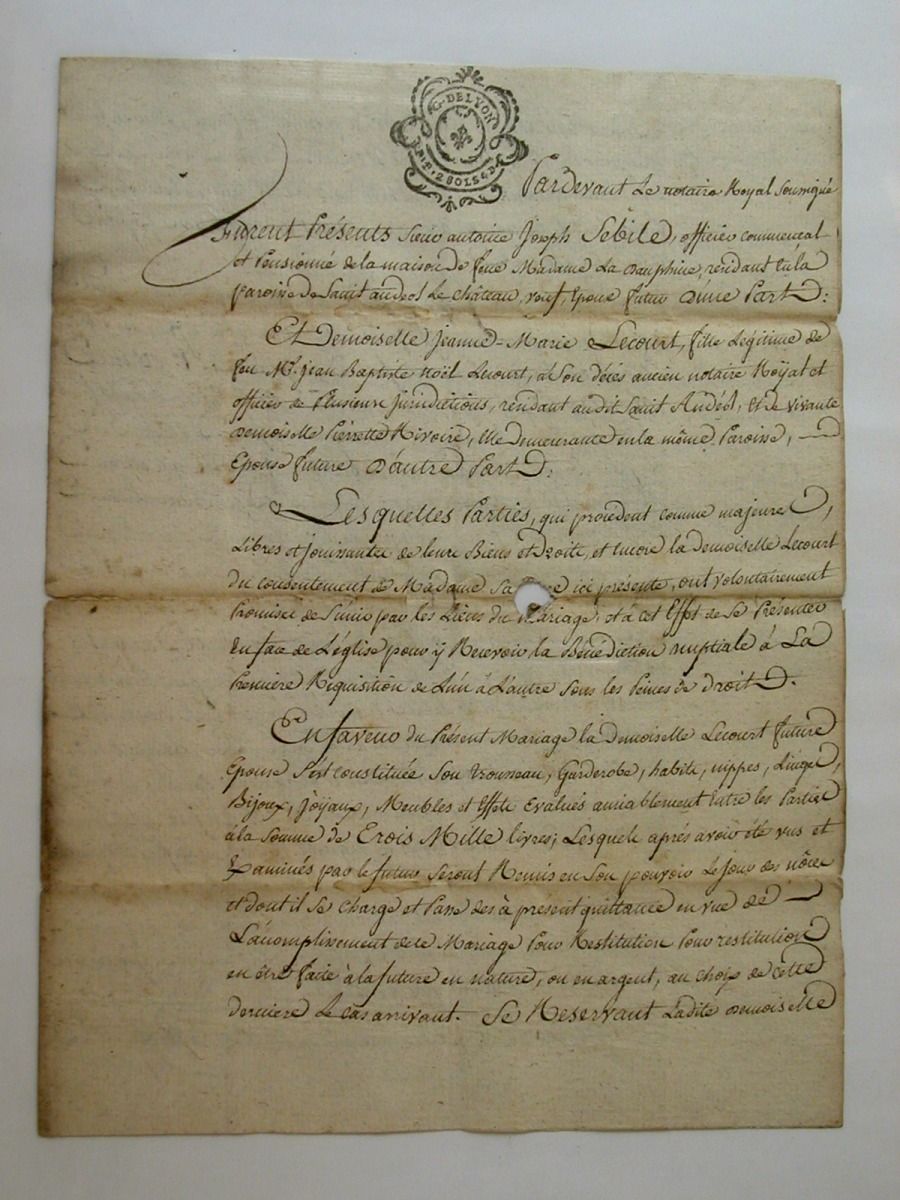 G. DE LYON
P.P. 2 SOLS 4 D.
Pardevant Le notaire Royal Soussigné
Furent Présents Sieur antoine Joseph Sebile, officier commencal
et Pensionné de la maison de feue Madame La Dauphine, résidant en la
paroisse de Saint andeol Le Château, veuf, Epoux futur D'une Part:
Et Demoiselle Jeanne-Marie Lecourt, fille Légitime de
feu Mr. jean Baptiste Noël Lecourt, à Son décès ancien notaire Roÿal et
officier de Plusieurs jurisdictions, résidant audit Saint Andéol, et de vivante
Demoiselle Pierrette Rivoire, Elle demeurante en la même Paroisse,
Epouse future D'autre Part:
Lesquelles Parties, qui procedent comme majeures,
Libres et jouissantes de leurs Biens et Droits, et encore la Demoiselle Lecourt
du consentement de Madame Sa mere ici présente, ont volontairement
Promises de S'unir par les Liens du Mariage, et à cet Effet de se Présenter
En face de L'église pour ÿ Recevoir la Bénédiction nuptiale à La
Premiere Réquisition de L'un à L'autre Sous les Peines de Droit.
En faveur du Présent Mariage la Demoiselle Lecourt future
Epouse S'est constituée Son trousseau, Garderobe, habits, nippes, Linges,
Bijoux, joÿaux, Meubles et Effets Evalués amiablement Entre les Parties
à la Somme de Trois Mille livres; Lesquels aprés avoir été vus et
Examinés par le futur Seront Remis en Son pouvoir Le jour des nôces
et dont il Se charge et Passe dès à présent quittance en vue de
L'accomplissement de ce Mariage Pour Restitution Pour restitution
en être faite à la future en nature, ou en argent, au choix de cette
derniere Le cas arrivant. Se Reservant Ladite Demoiselle